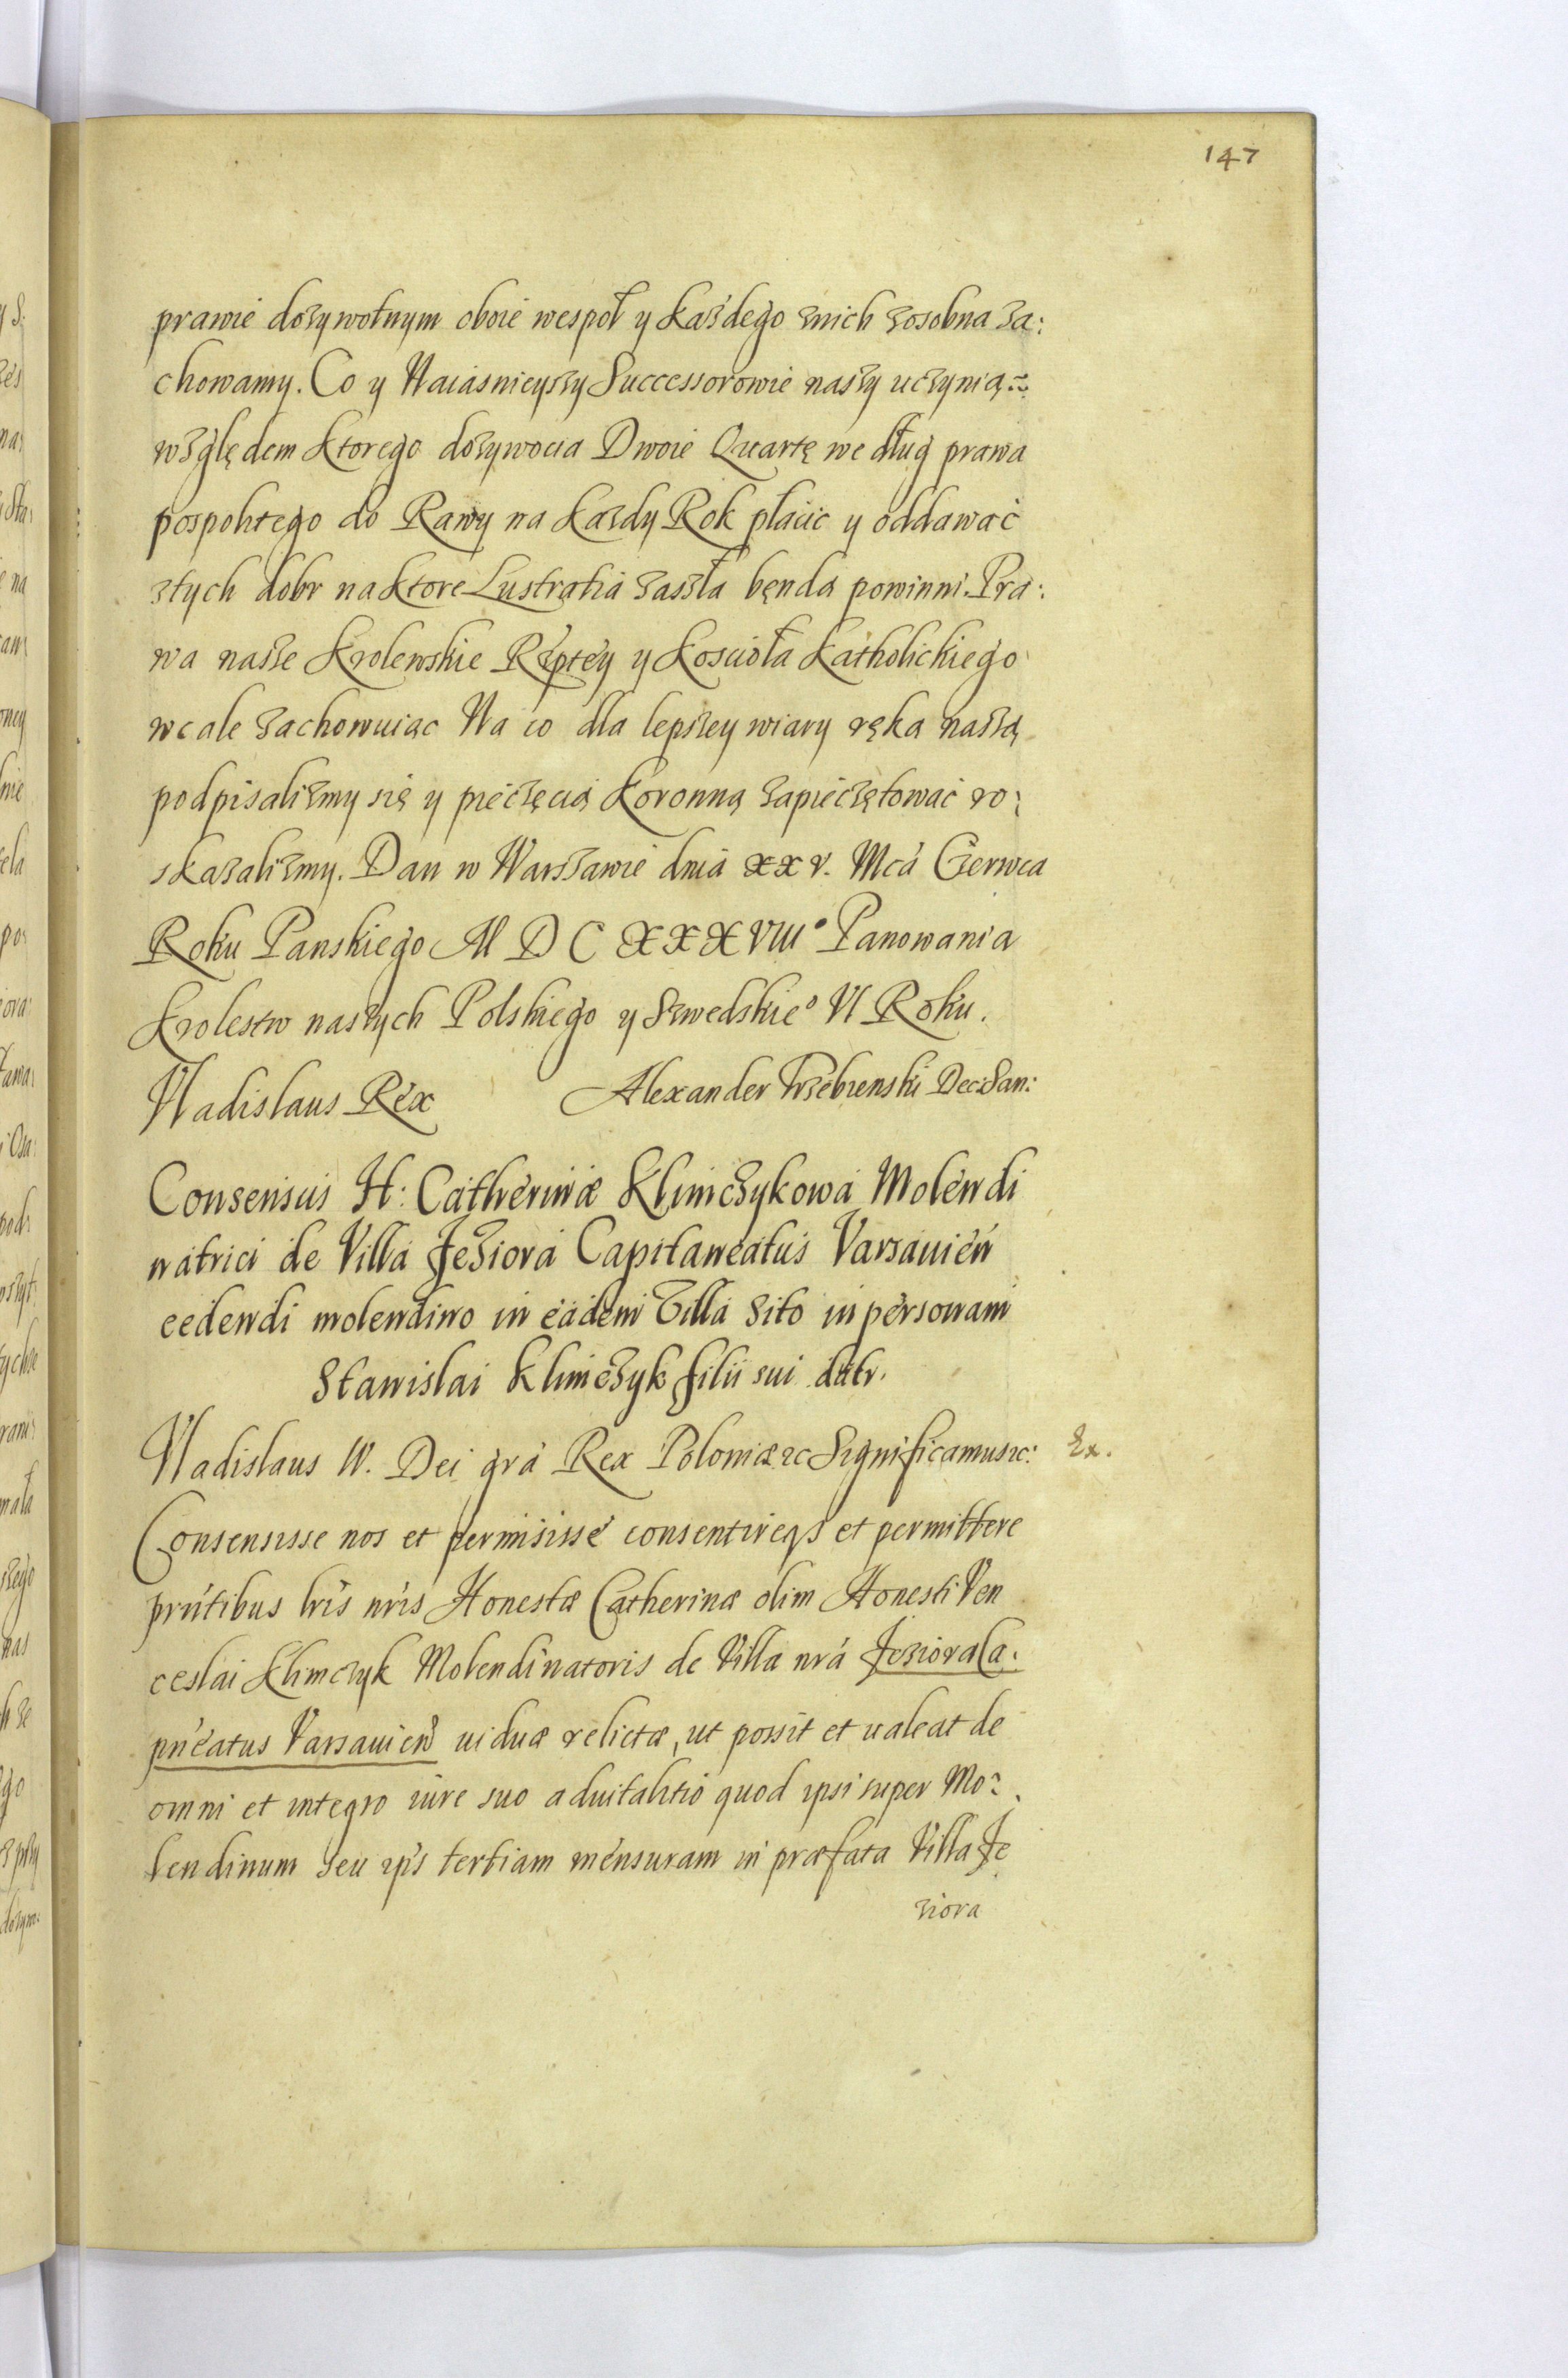 147
prawie dożywotnym oboie wespoł y każdego znich zosobna za:
chowamy. Co y Naiasnieyszy Successorowie naszy uczynią
względem ktorego dożywocia Dwoie Quartę we dług prawa
pospolitego do Rawy na każdy Rok płacic y oddawać
ztych dobr na ktore Lustratia zaszła bęnda powinni. Pra:
wa nasze Krolewskie Rzptey y Koscioła Katholickiego
wcale zachowuiąc Na co dla lepszey wiary ręką naszą
podpisalizmy się y pieczęcią Koronną zapieczętować ro:
skazalizmy. Dan w Warszawie dnia XXV. Mca Czerwca
Roku Panskiego M D C XXXVIIIo Panowania
Krolestw naszych Polskiego y Szwedskieo VI Roku.
Vladislaus Rex Alexander Trzebienski Dec: San:
Consensus H: Catherinæ Klimczykowa Molendi
natrici de Villa Jeziora Capitaneatus Varsauień
cedendi molendino in eadem Villa Sito in personam
Stanislai Klimczyk filii sui datr.
Vladislaus IV. Dei gra Rex Poloniæ &c Significamus &c: Ex.
Consensisse nos et permisisse consentireqs et permittere
pntibus lris nris Honestæ Catherinæ olim Honesti Ven
ceslai Klimczyk Molendinatoris de Villa nra Jeziora Ca:
pneatus Varsauień uiduæ relictæ, ut possit et ualeat de
omni et integro iure suo aduitalitio quod ipsi super Mo:
lendinum seu ips tertiam mensuram in præfata Villa Je
ziora